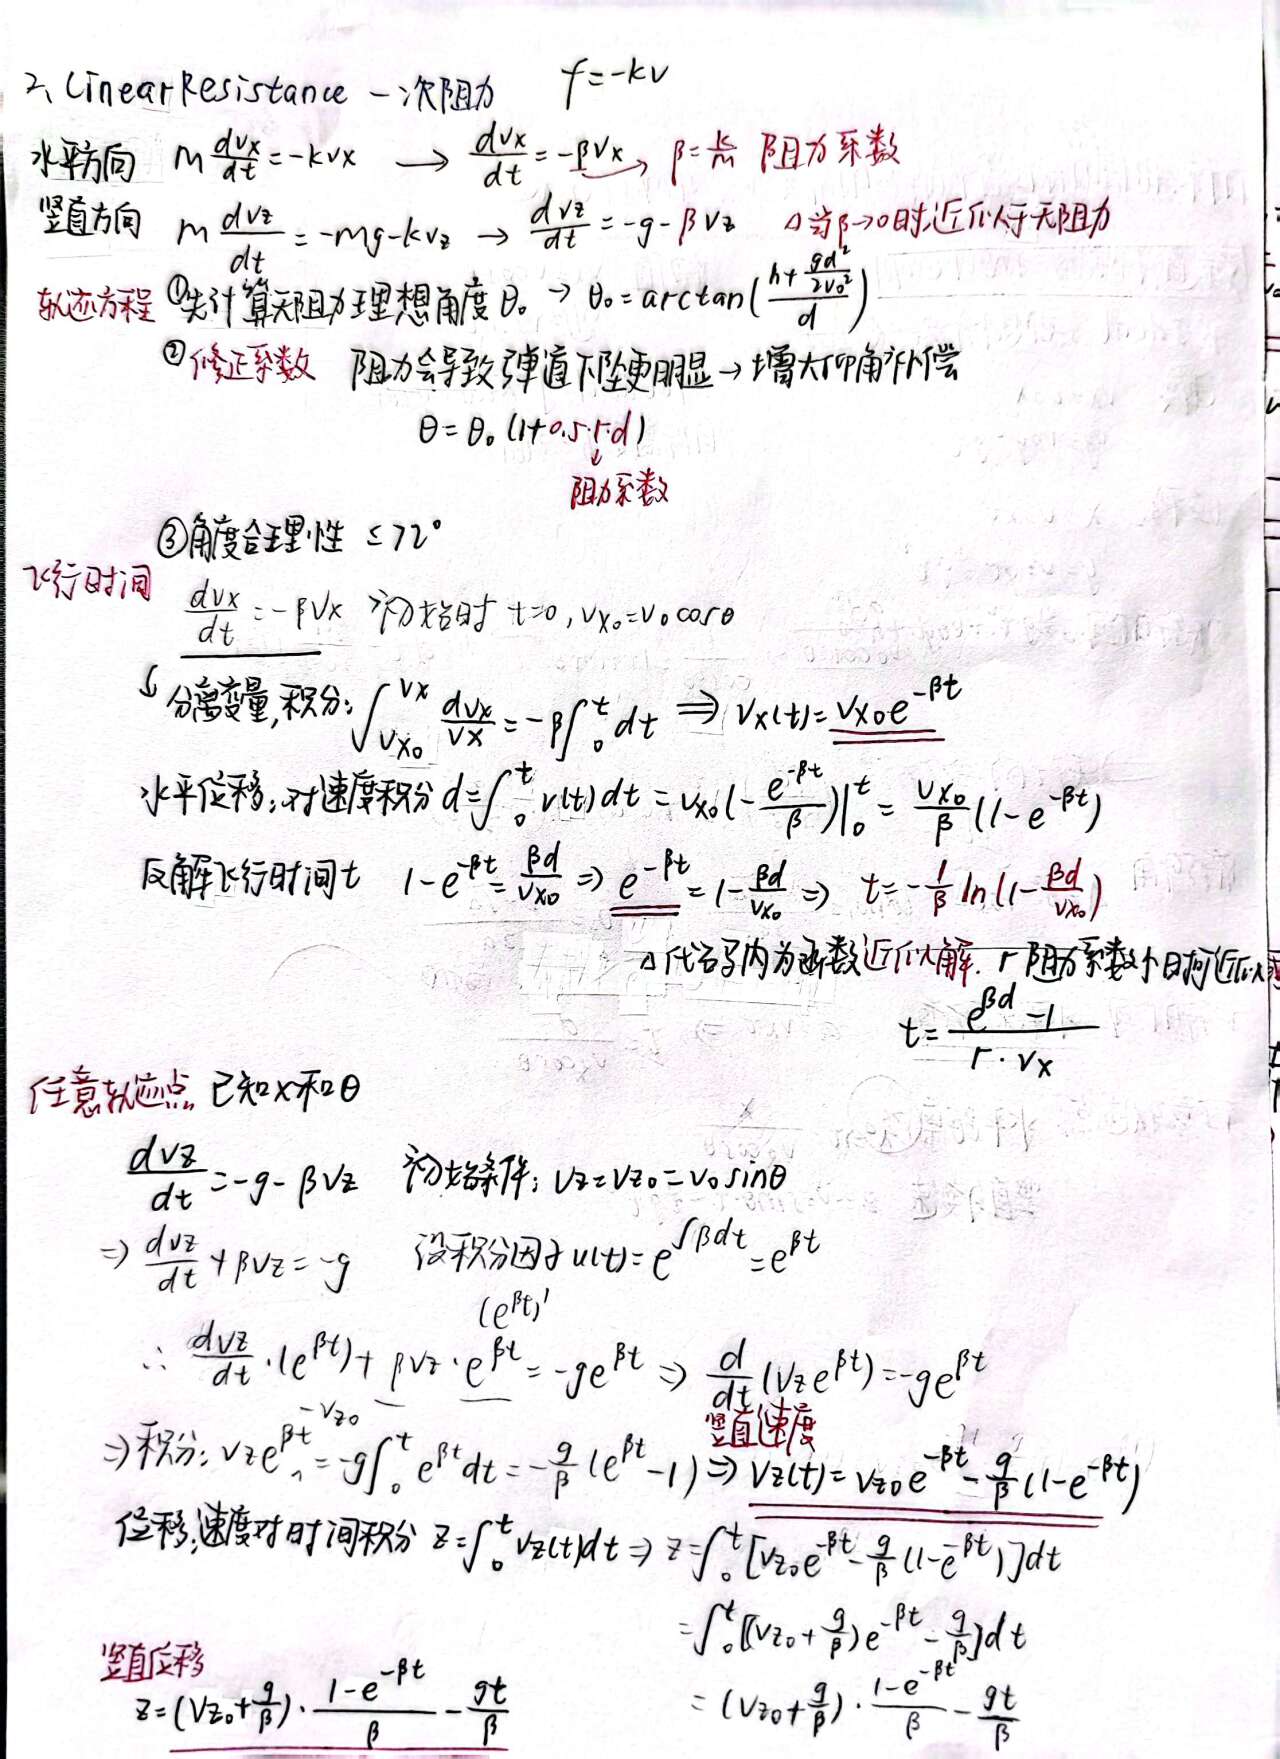 2、Linear Resistance 一次阻力 f=-kv
水平方向 m dvx/dt=-kvx → dvx/dt=-βvx → β=k/m 阻力系数
竖直方向 m dvz/dt=-mg-kvz → dvz/dt=-g-βvz △当β→0时,近似于无阻力
轨迹方程 ①先计算无阻力理想角度θ₀ → θ₀=arctan((h+gd²/2v₀²)/d)
②修正系数 阻力会导致弹道下坠更明显→增大仰角补偿
θ=θ₀(1+0.5·r·d)
↓
阻力系数
③角度合理性 ≤72°
飞行时间
dvx/dt=-βvx 初始时 t=0, vx₀=v₀cosθ
↓分离变量,积分: ∫_{vx₀}^{vx} dvx/vx=-β∫₀^t dt ⇒ vx(t)=vx₀e^{-βt}
水平位移:对速度积分 d=∫₀^t v(t)dt=vx₀(-e^{-βt}/β)|₀^t=vx₀/β(1-e^{-βt})
反解飞行时间t 1-e^{-βt}=βd/vx₀ ⇒ e^{-βt}=1-βd/vx₀ ⇒ t=-1/β ln(1-βd/vx₀)
△代码内为函数近似解. r阻力系数小时可近似
t=(e^{βd}-1)/(r·vx)
任意轨迹点 已知x和θ
dvz/dt=-g-βvz 初始条件: vz=vz₀=v₀sinθ
⇒ dvz/dt+βvz=-g 设积分因子u(t)=e^{∫βdt}=e^{βt}
(e^{βt})'
∴ dvz/dt·(e^{βt})+βvz·e^{βt}=-ge^{βt} ⇒ d/dt(vze^{βt})=-ge^{βt}
-vz₀ 竖直速度
⇒积分: vze^{βt}=-g∫₀^t e^{βt}dt=-g/β(e^{βt}-1) ⇒ vz(t)=vz₀e^{-βt}-g/β(1-e^{-βt})
位移,速度对时间积分 z=∫₀^t vz(t)dt ⇒ z=∫₀^t[vz₀e^{-βt}-g/β(1-e^{-βt})]dt
=∫₀^t[(vz₀+g/β)e^{-βt}-g/β]dt
竖直位移
z=(vz₀+g/β)·(1-e^{-βt})/β-gt/β =(vz₀+g/β)·(1-e^{-βt})/β-gt/β